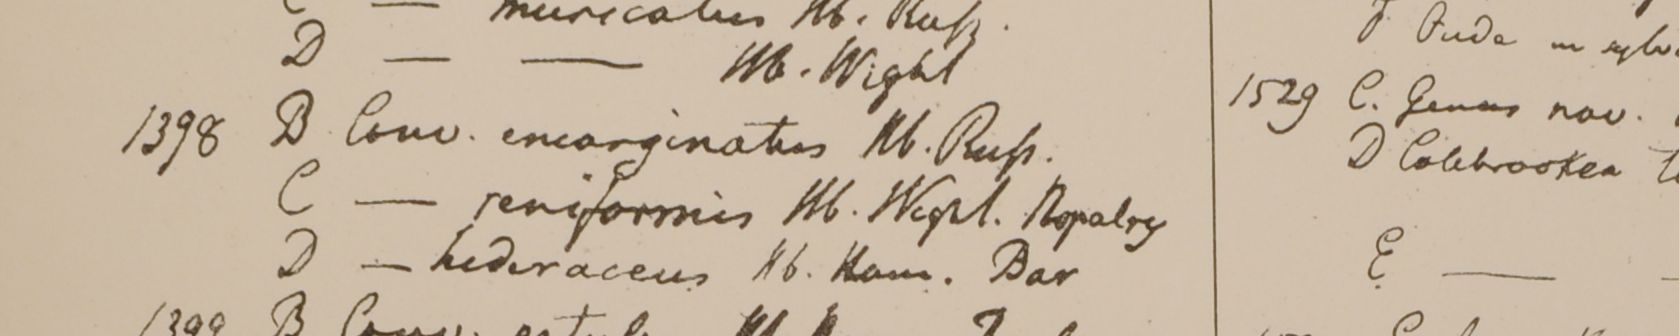 C — muricatus Hb. Russ.
D — — Hb. Wight
1398 B Conv. emarginatus Hb. Russ.
C — reniformis Hb. Wight. Nopalry
D — hederaceus Hb. Ham. Bar
1399 B Conv.
F Oude in
1529 C. Genus nov.
D Colebrookea
E —